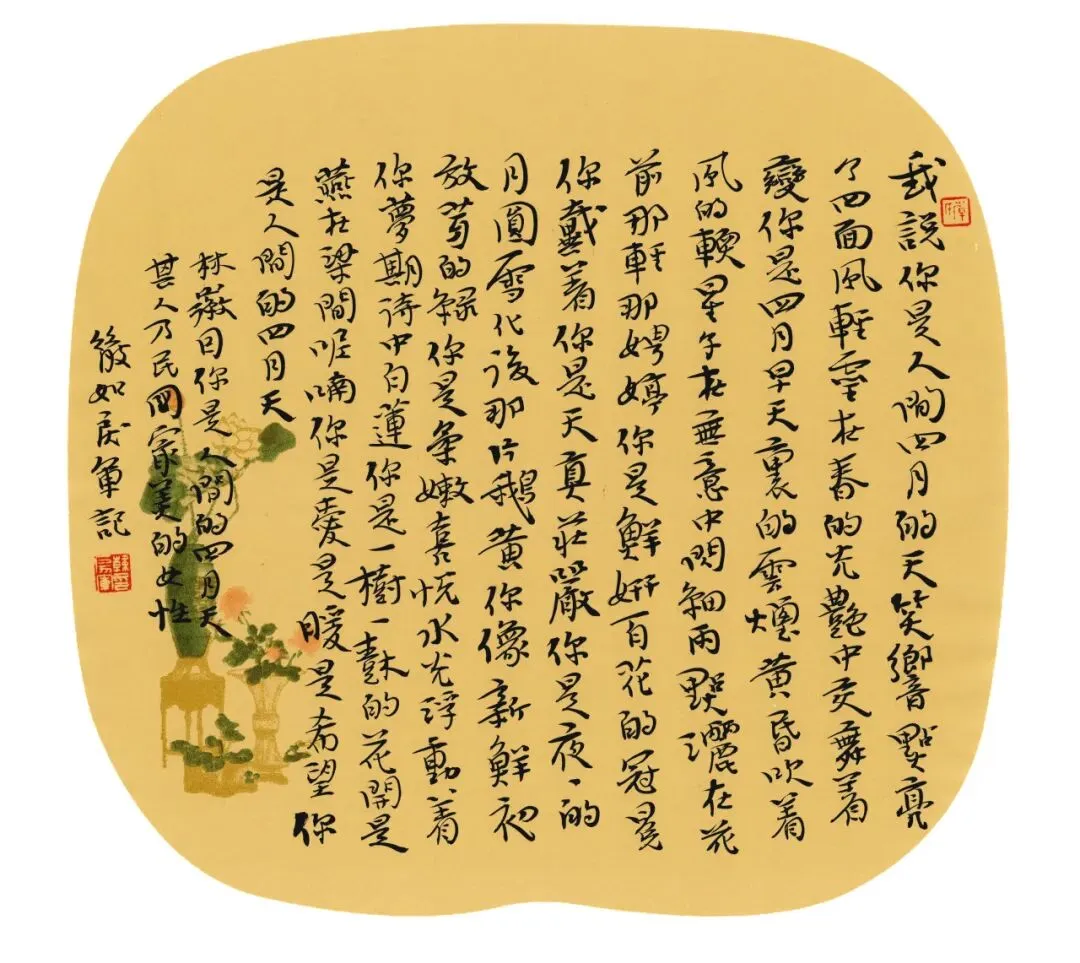 我說你是人間四月的天笑響點亮
了四面風輕靈在春的光艷中交舞着
變你是四月早天裏的雲煙黃昏吹着
風的軟星子在無意中閃細雨點灑在花
前那輕那娉婷你是鮮妍百花的冠冕
你戴着你是天真莊嚴你是夜夜的
月圓雪化後那片鵝黃你像新鮮初
放芽的綠你是柔嫩喜悅水光浮動着
你夢期待中白蓮你是一樹一樹的花開是
燕在梁間呢喃你是愛是暖是希望你
是人間的四月天
林徽因你是人間的四月天
其人乃民國美的女性
筱如軍記